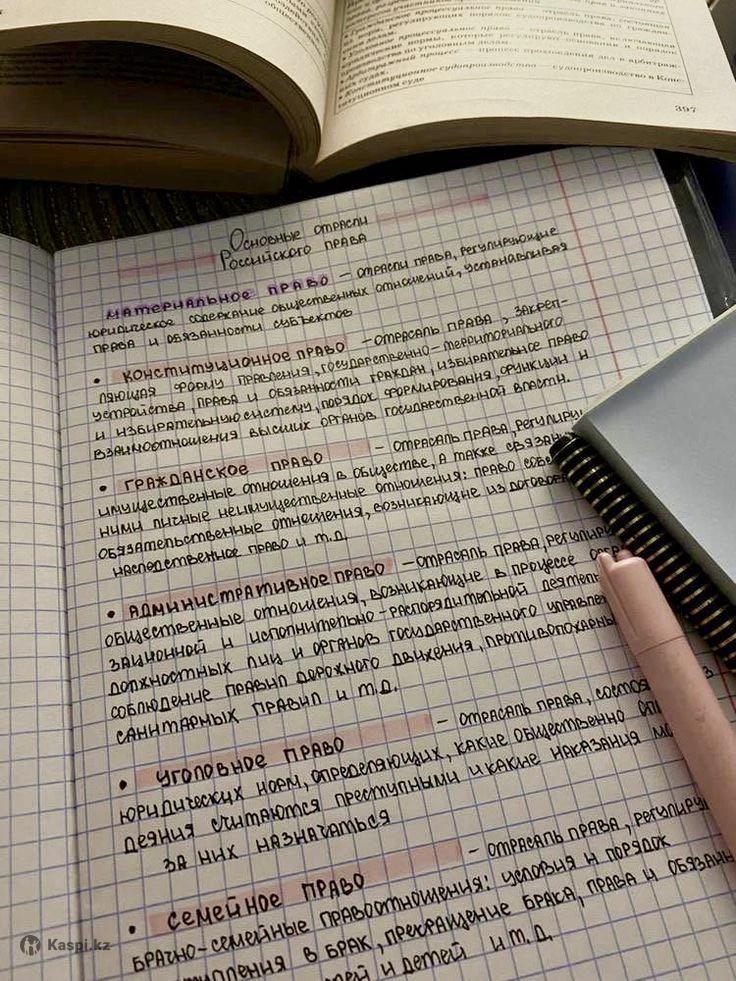 • Конституционное судопроизводство — судопроизводство в Конституционном суде
397
Основные отрасли
Российского права
Материальное право – отрасли права, регулирующие
юридическое содержание общественных отношений, устанавливая
права и обязанности субъектов
• Конституционное право – отрасаль права, закреп-
ляющая форму правления, государственно-территориального
устройства, права и обязанности граждан, избирательное право
и избирательную систему, порядок формирования, функции и
взаимоотношения высших органов государственной власти.
• Гражданское право – отрасаль права, регулиру
имущественные отношения в обществе, а также связан
ними личные неимущественные отношения: право собс
обязательственные отношения, возникающие из договор
наследственное право и т.д.
• Административное право – отрасаль права, регулиру
общественные отношения, возникающие в процессе орга
зационной и исполнительно-распорядительной деятель
должностных лиц и органов государственного управле
соблюдение правил дорожного движения, противопожарны
санитарных правил и т.д.
• Уголовное право – отрасаль права, состоя з
юридических норм, определяющих, какие общественно оп
деяния считаются преступными и какие наказания мо
за них назначаться
• Семейное право – отрасаль права, регулиру
брачно-семейные правоотношения: условия и порядок
ступления в брак, прекращение брака, права и обязанн
ей и детей и т.д.
Kaspi.kz